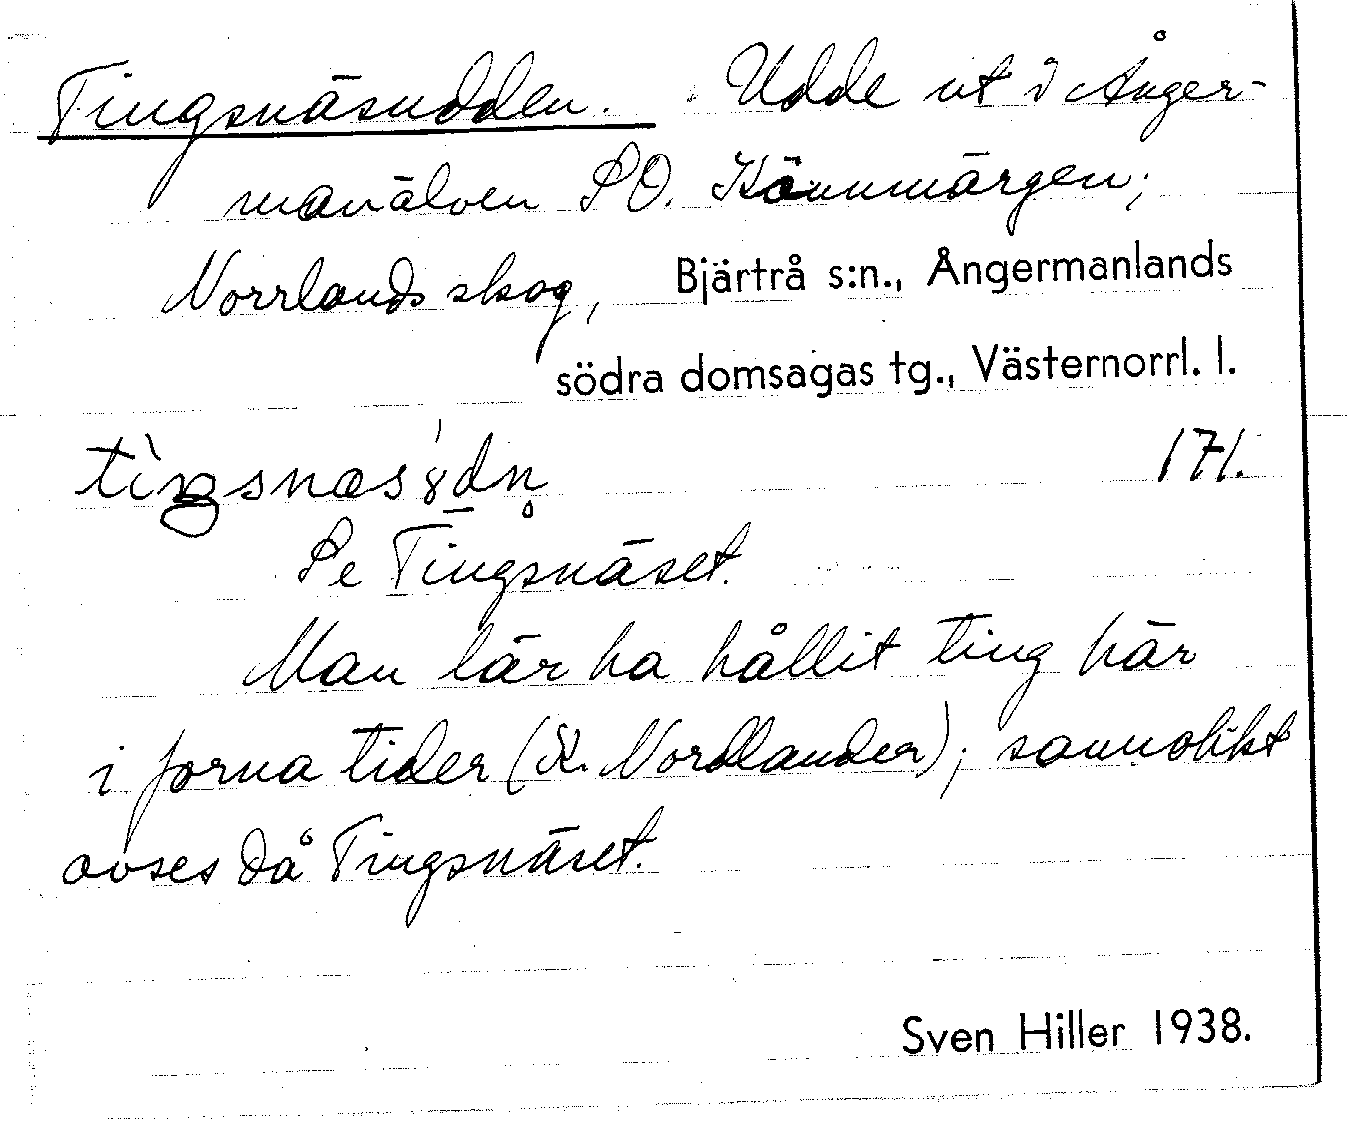 Tingsnäsudden. Udde ut i Ånger-
manälven SO. Hämmärgen;
Norrlands skog, Bjärtrå s:n., Ångermanlands
södra domsagas tg., Västernorrl. l.
171.
Se Tingsnäset.
Man lär ha hållit ting här
i forna tider (K. Nordlander); sannolikt
avses då Tingsnäset.
Sven Hiller 1938.